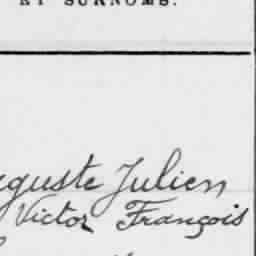 ET SURNOMS.
Auguste Julien
Victor François